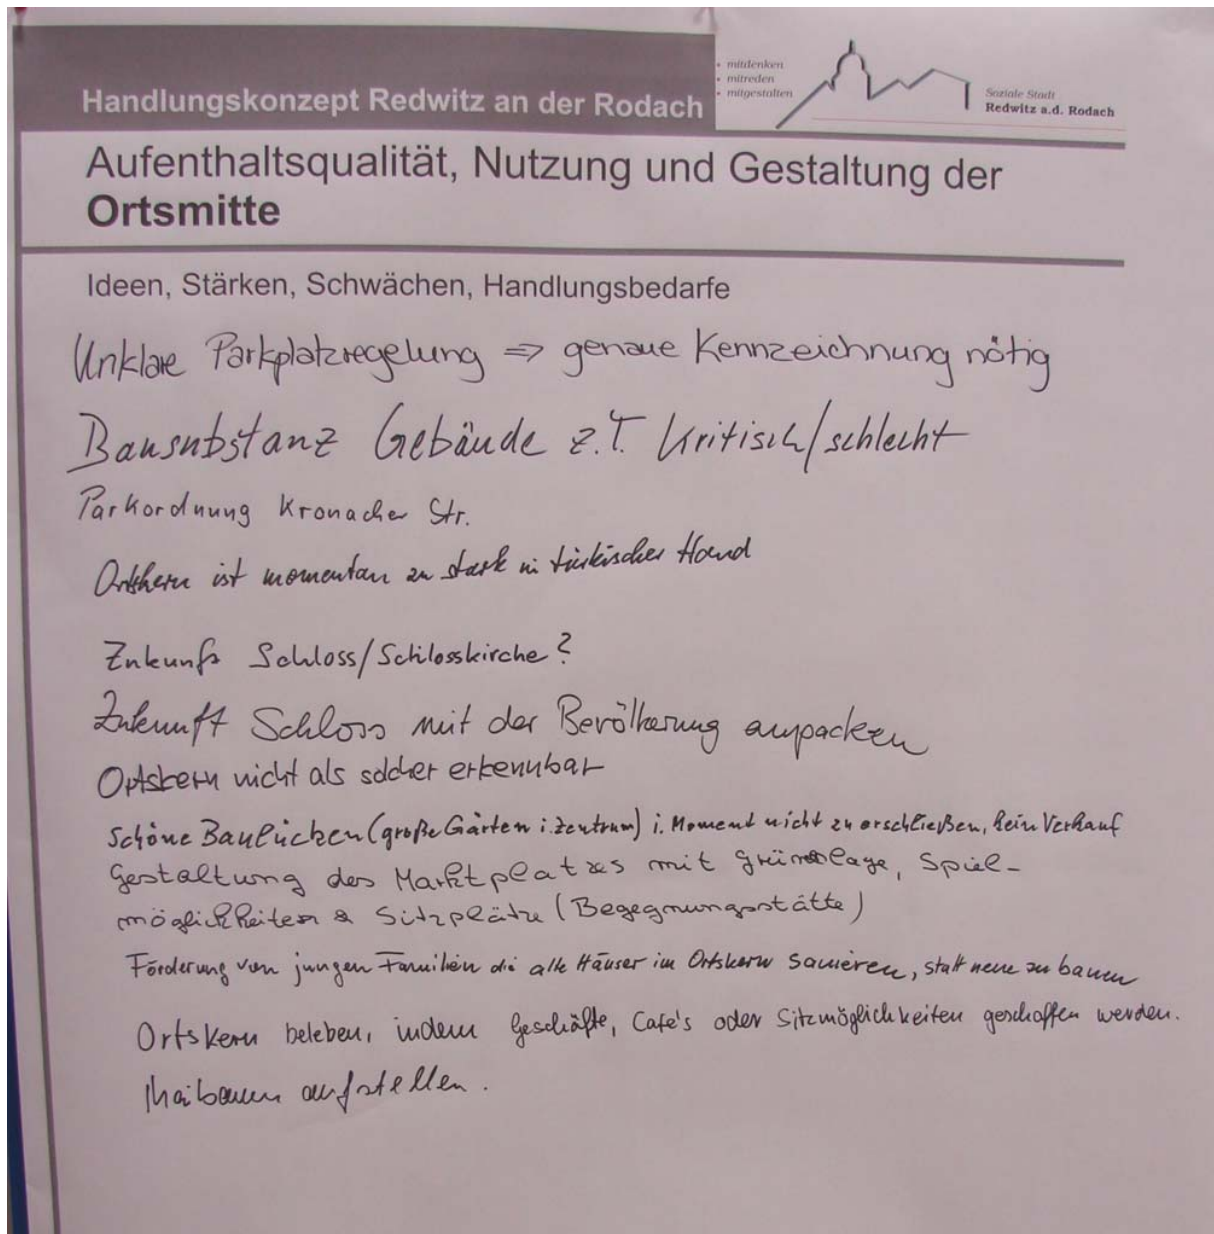 Handlungskonzept Redwitz an der Rodach
• mitdenken
• mitreden
• mitgestalten
Soziale Stadt
Redwitz a.d. Rodach
Aufenthaltsqualität, Nutzung und Gestaltung der
Ortsmitte
Ideen, Stärken, Schwächen, Handlungsbedarfe
Unklare Parkplatzregelung => genaue Kennzeichnung nötig
Bausubstanz Gebäude z.T. kritisch/schlecht
Parkordnung Kronacher Str.
Ortskern ist momentan zu stark in türkischer Hand
Zukunft Schloss/Schlosskirche?
Zukunft Schloss mit der Bevölkerung anpacken
Ortskern nicht als solcher erkennbar
Schöne Baulücken (große Gärten i. Zentrum) i. Moment nicht zu erschließen, kein Verkauf
Gestaltung des Marktplatzes mit , Spiel-
möglichkeiten & Sitzplätze (Begegnungsstätte)
Förderung von jungen Familien die alte Häuser im Ortskern sanieren, statt neue zu bauen
Ortskern beleben, indem Geschäfte, Cafe's oder Sitzmöglichkeiten geschaffen werden.
Maibaum aufstellen.